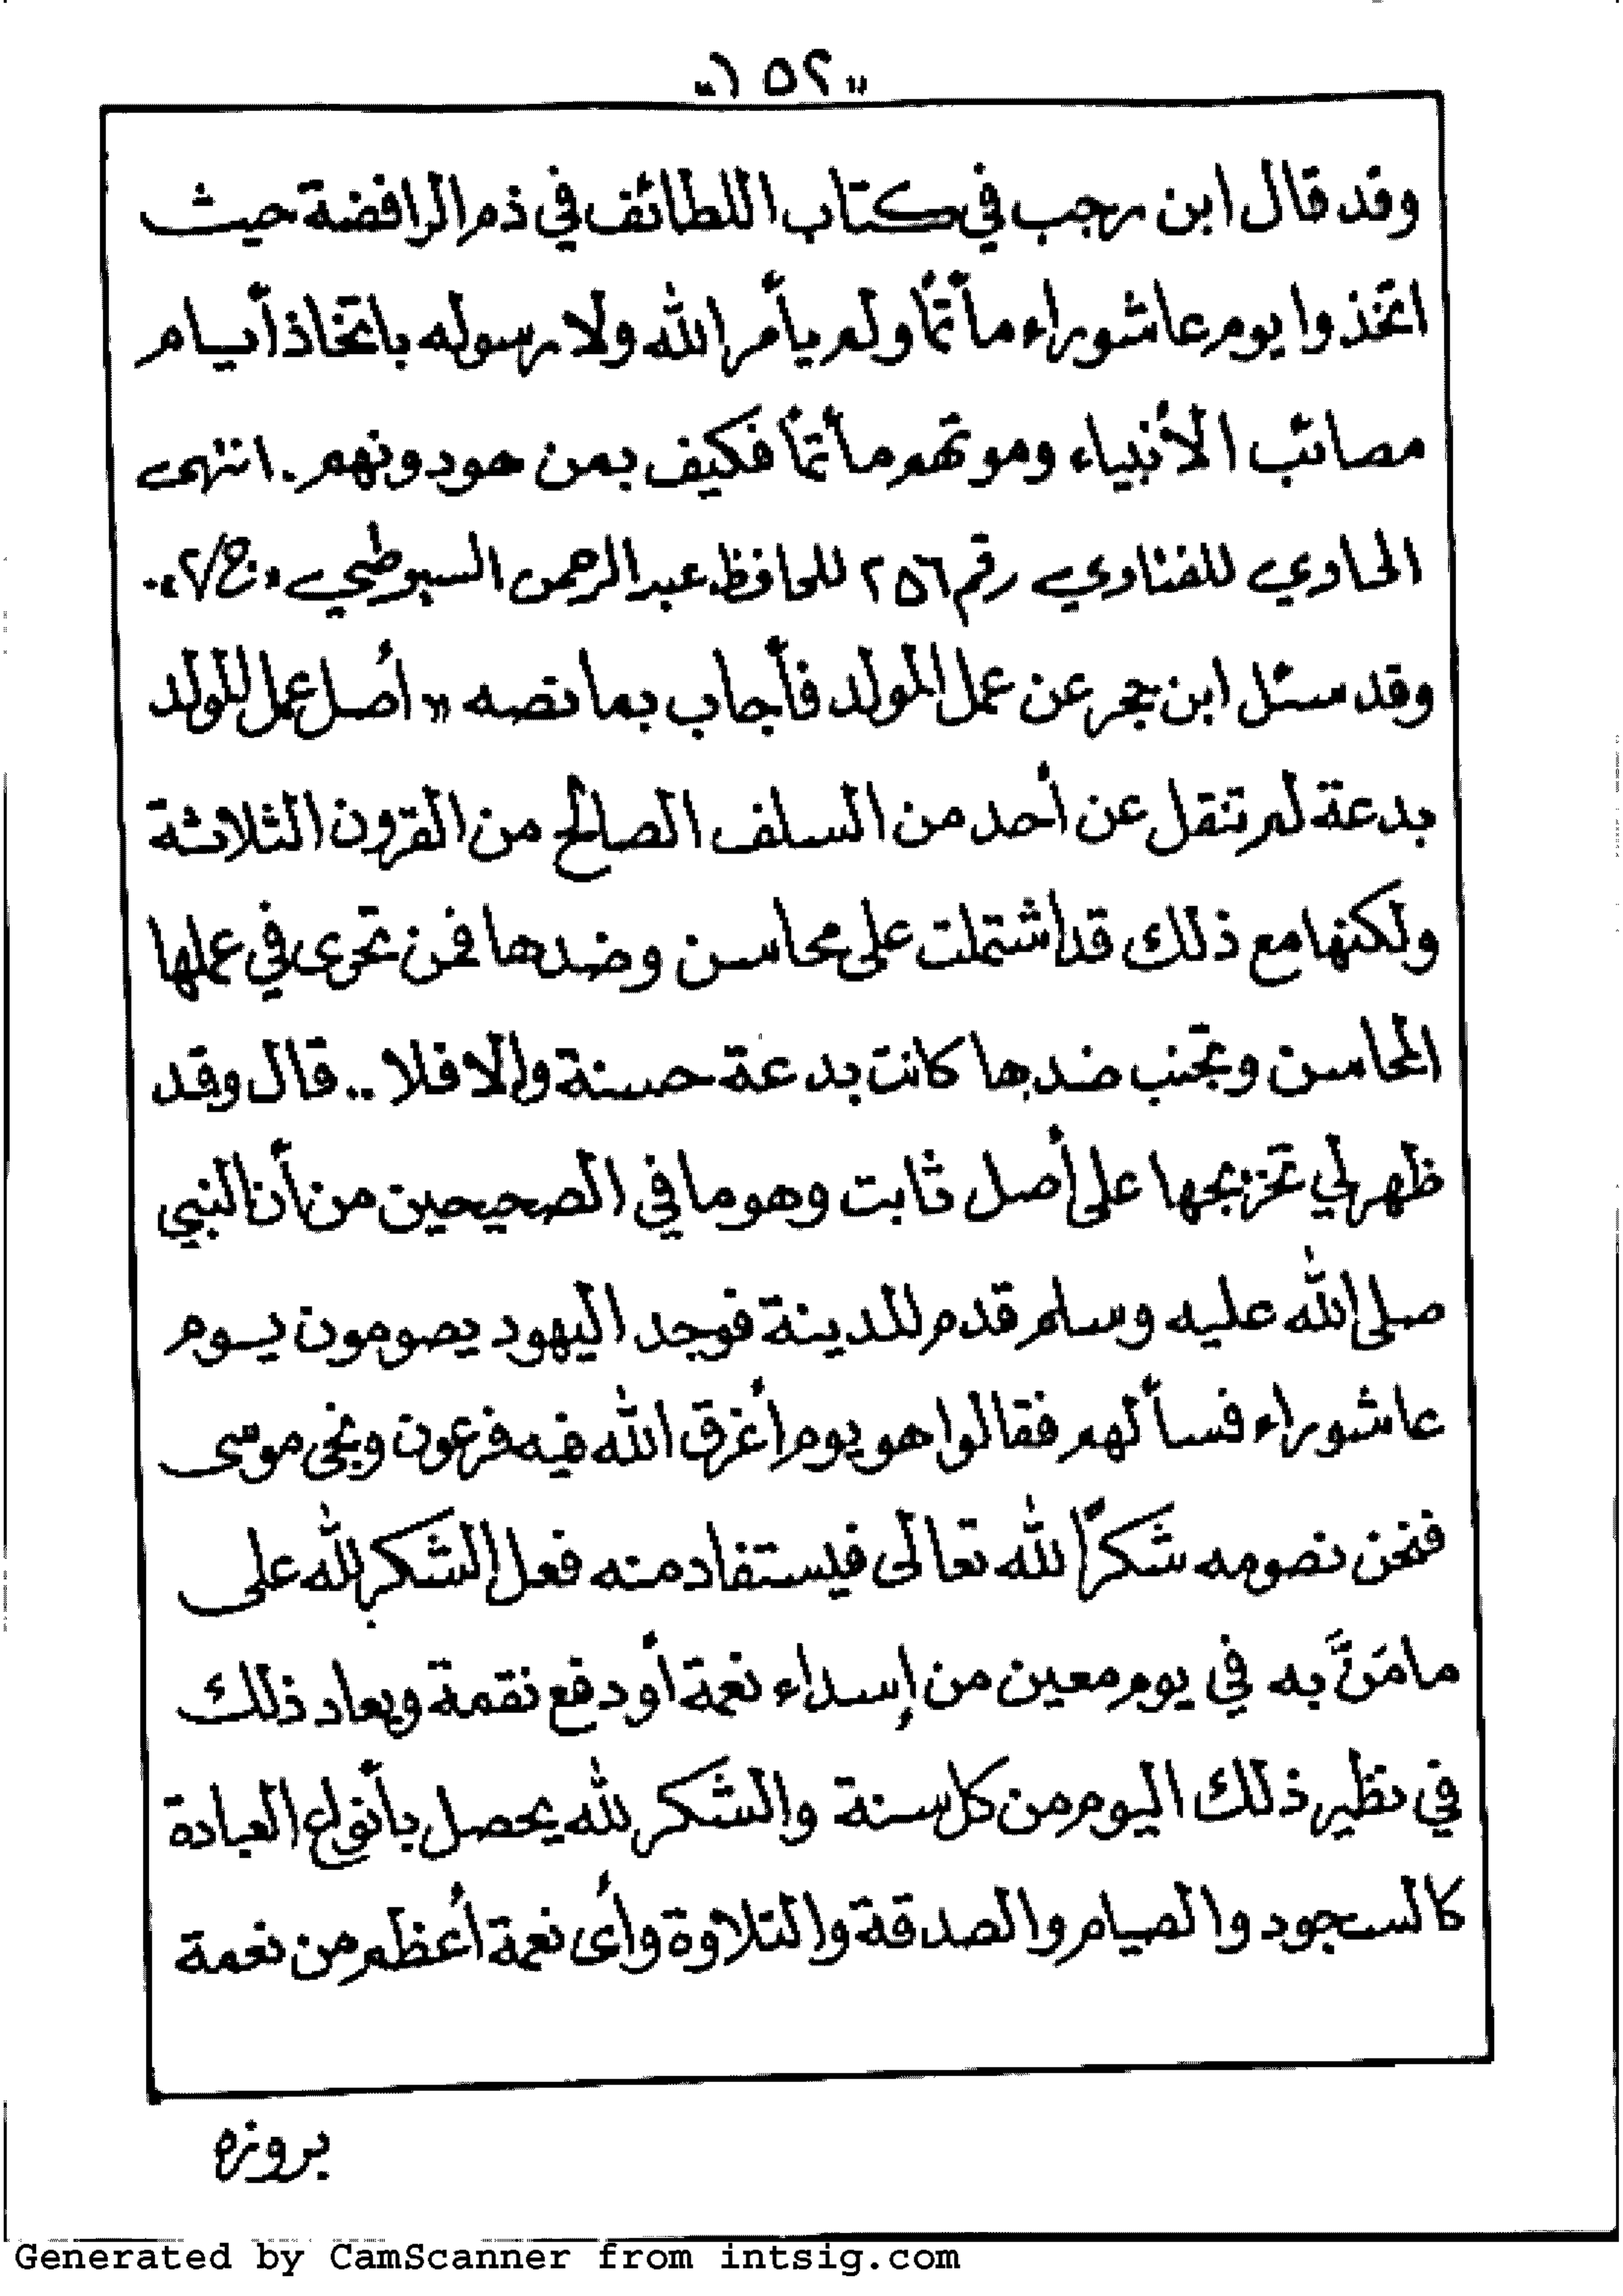 "١٥٢"
وقد قال ابن رجب في كتاب اللطائف في ذم الرافضة حيث
اتخذوا يوم عاشوراء مأتمًا ولم يأمر الله ولا رسوله باتخاذ أيام
مصائب الأنبياء وموتهم مأتمًا فكيف بمن هو دونهم. انتهى
الحاوي للفتاوي رقم ٢٥٦ للحافظ عبد الرحمن السيوطي «ج/٢».
وقد سئل ابن حجر عن عمل المولد فأجاب بما نصه «أصل عمل المولد
بدعة لم تنقل عن أحد من السلف الصالح من القرون الثلاثة
ولكنها مع ذلك قد اشتملت على محاسن وضدها فمن تحرى في عملها
المحاسن وتجنب ضدها كانت بدعة حسنة وإلا فلا .. قال وقد
ظهر لي تخريجها على أصل ثابت وهو ما في الصحيحين من أن النبي
صلى الله عليه وسلم قدم المدينة فوجد اليهود يصومون يوم
عاشوراء فسألهم فقالوا هو يوم أغرق الله فيه فرعون ونجى موسى
فنحن نصومه شكرًا لله تعالى فيستفاد منه فعل الشكر لله على
ما مَنَّ به في يوم معين من إسداء نعمة أو دفع نقمة ويعاد ذلك
في نظير ذلك اليوم من كل سنة والشكر لله يحصل بأنواع العبادة
كالسجود والصيام والصدقة والتلاوة وأى نعمة أعظم من نعمة
بروزه
Generated by CamScanner from intsig.com